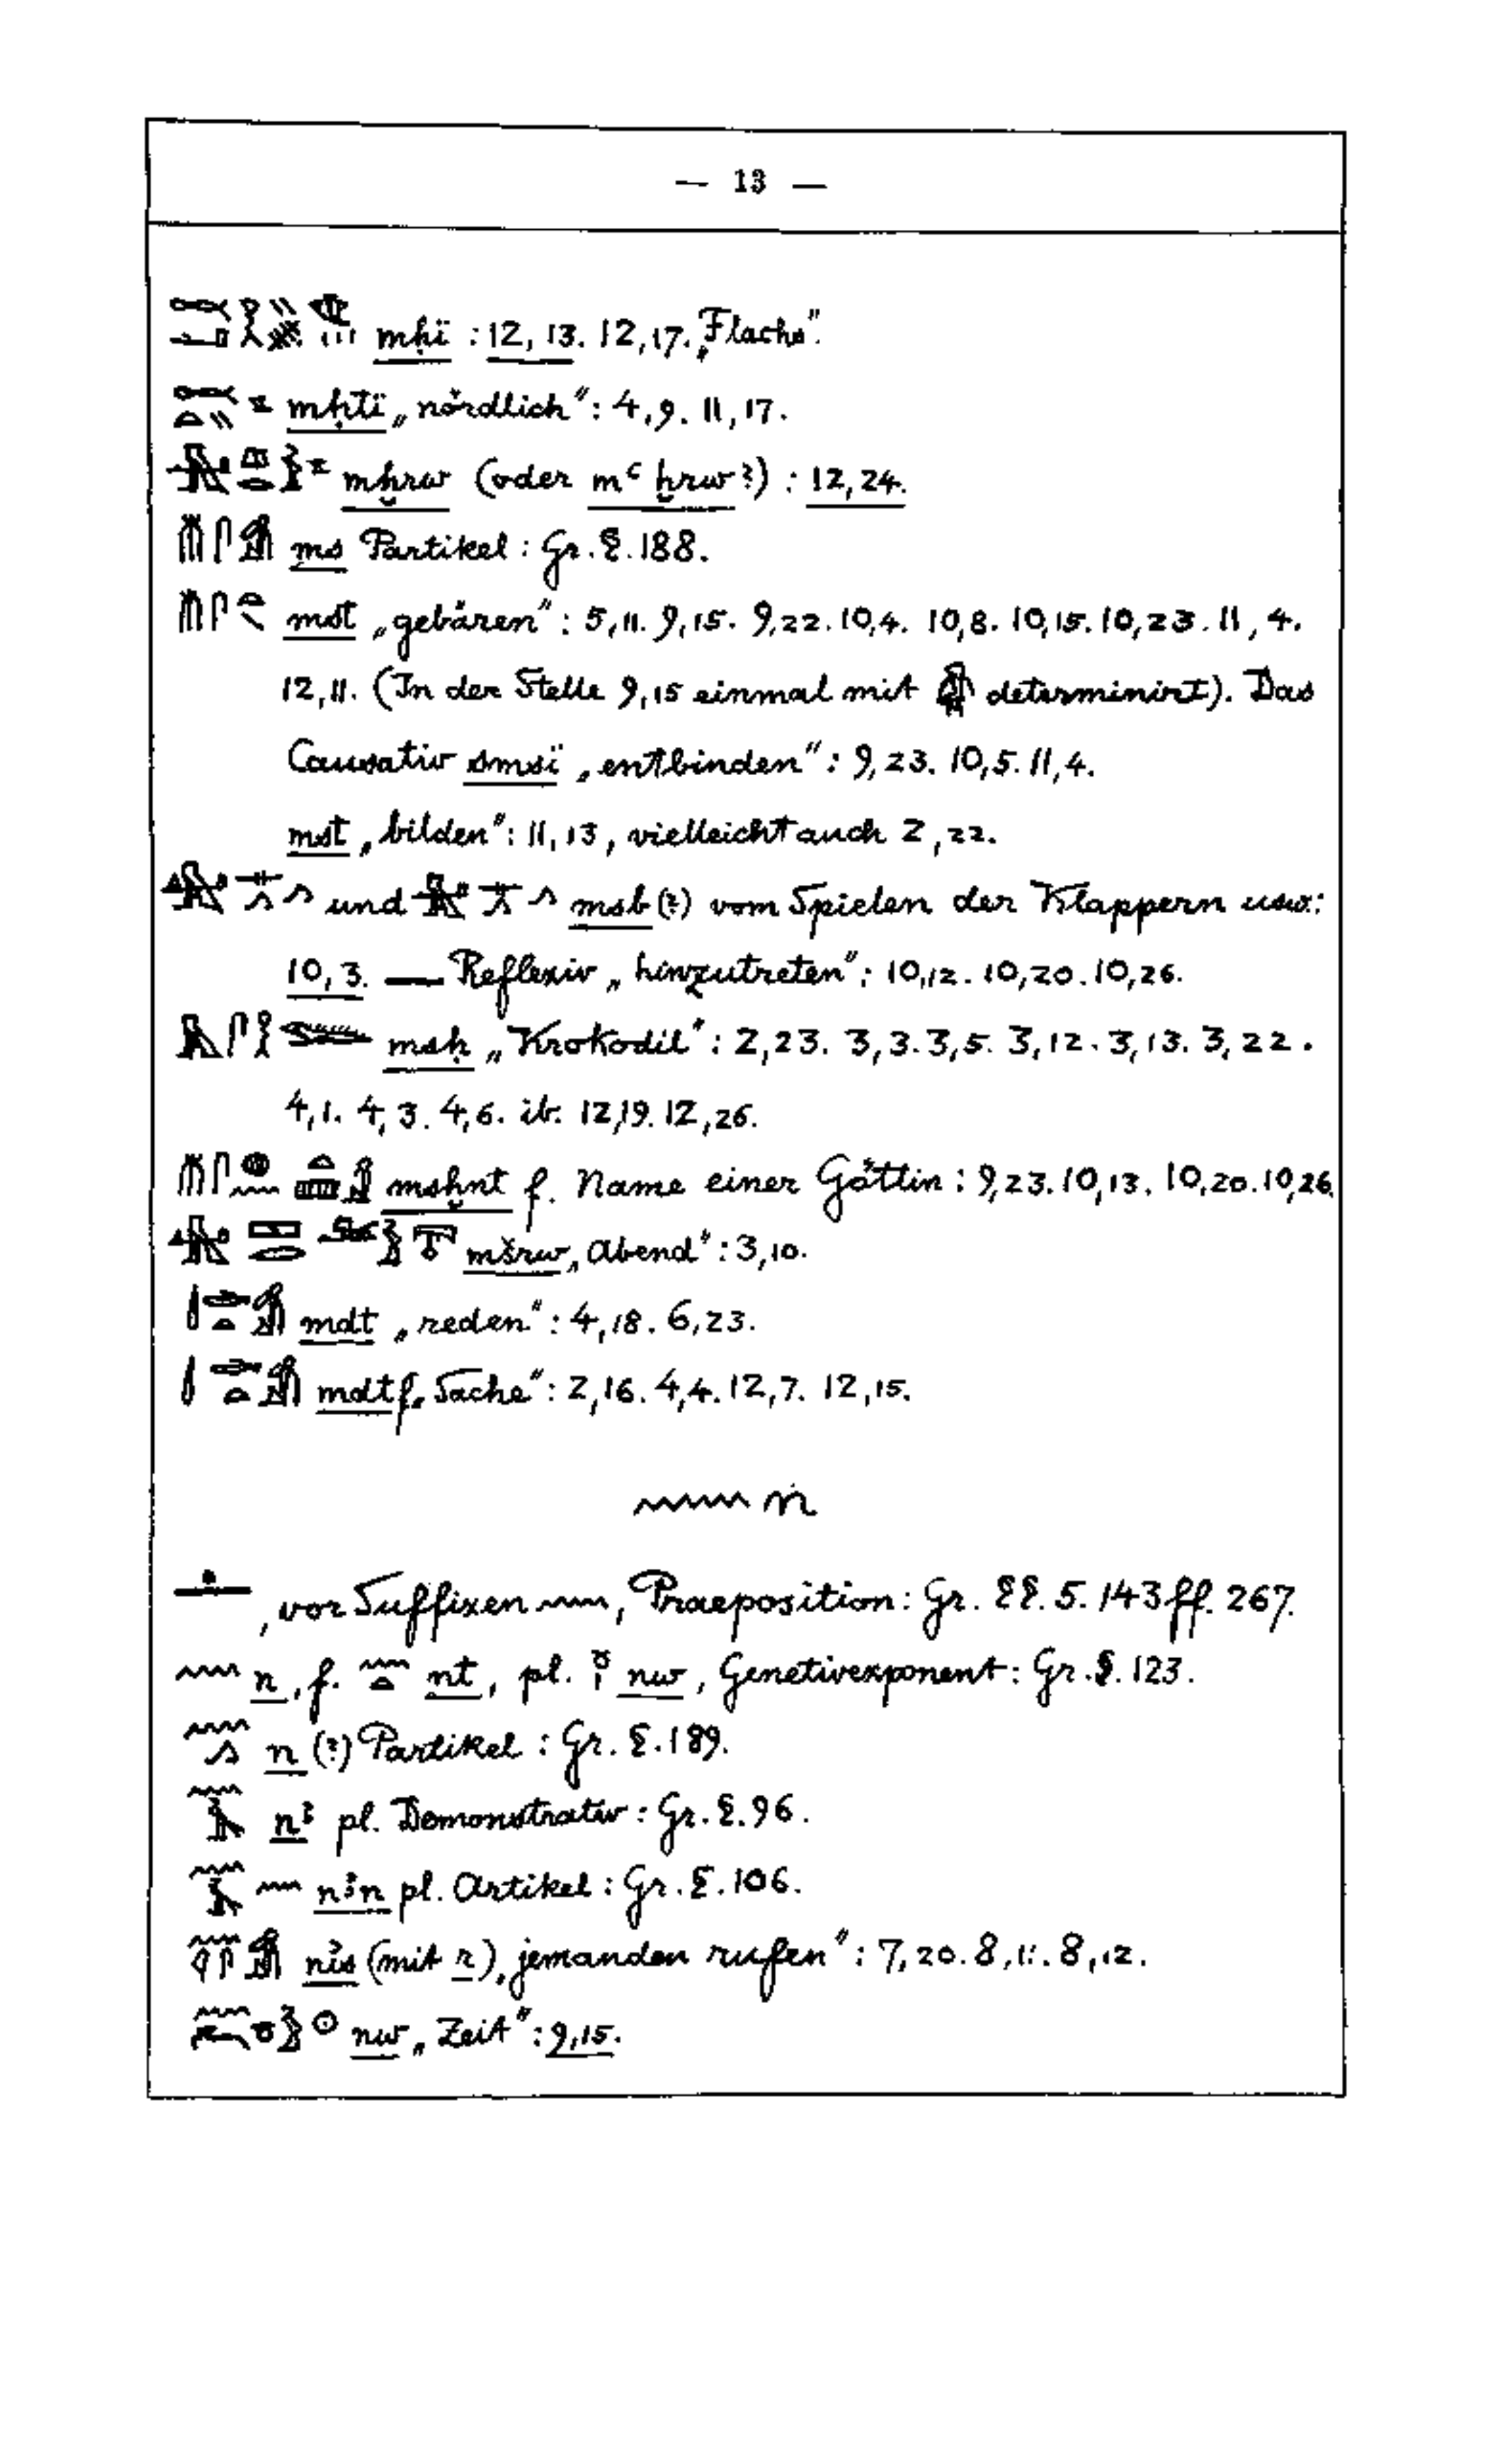 — 13 —
mḥï : 12, 13. 12, 17. „Flachs".
mḥtï „nördlich": 4, 9. 11, 17.
mḫrw (oder mꜥ ḫrw?) : 12, 24.
ms Partikel : Gr. §. 188.
mst „gebären": 5, 11. 9, 15. 9, 22. 10, 4. 10, 8. 10, 15. 10, 23. 11, 4.
12, 11. (In der Stelle 9, 15 einmal mit determinirt). Das
Causativ smsï „entbinden": 9, 23. 10, 5. 11, 4.
mst „bilden": 11, 13, vielleicht auch 2, 22.
und msb (?) vom Spielen der Klappern usw.:
10, 3. — Reflexiv „hinzutreten": 10, 12. 10, 20. 10, 26.
msḥ „Krokodil": 2, 23. 3, 3. 3, 5. 3, 12. 3, 13. 3, 22.
4, 1. 4, 3. 4, 6. ib. 12, 19. 12, 26.
msḫnt f. Name einer Göttin : 9, 23. 10, 13. 10, 20. 10, 26.
mšrw „Abend": 3, 10.
mdt „reden": 4, 18. 6, 23.
mdt f. „Sache": 2, 16. 4, 4. 12, 7. 12, 15.
𓈖 n
, vor Suffixen 𓈖, Praeposition: Gr. §§. 5. 143 ff. 267.
𓈖 n, f. nt, pl. nw, Genetivexponent: Gr. §. 123.
n (?) Partikel : Gr. §. 189.
nꜣ pl. Demonstrativ : Gr. §. 96.
nꜣn pl. Artikel : Gr. §. 106.
nỉs (mit r) „jemanden rufen": 7, 20. 8, 11. 8, 12.
nw „Zeit": 9, 15.